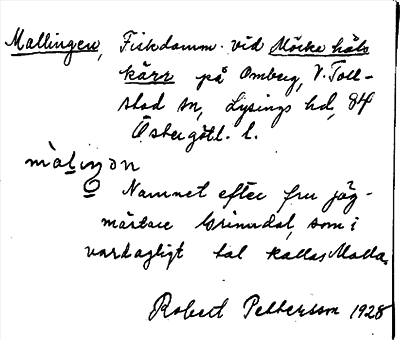 Mallingen, Fiskdamm vid Mörkahåls
kärr på Omberg, V. Toll-
stad sn, Lysings hd, 84
Östergötl. l.
màlıŋən
o Namnet efter fru jäg-
mästare Grimdal, som i
vardagligt tal kallas Malla.
Robert Pettersson 1928